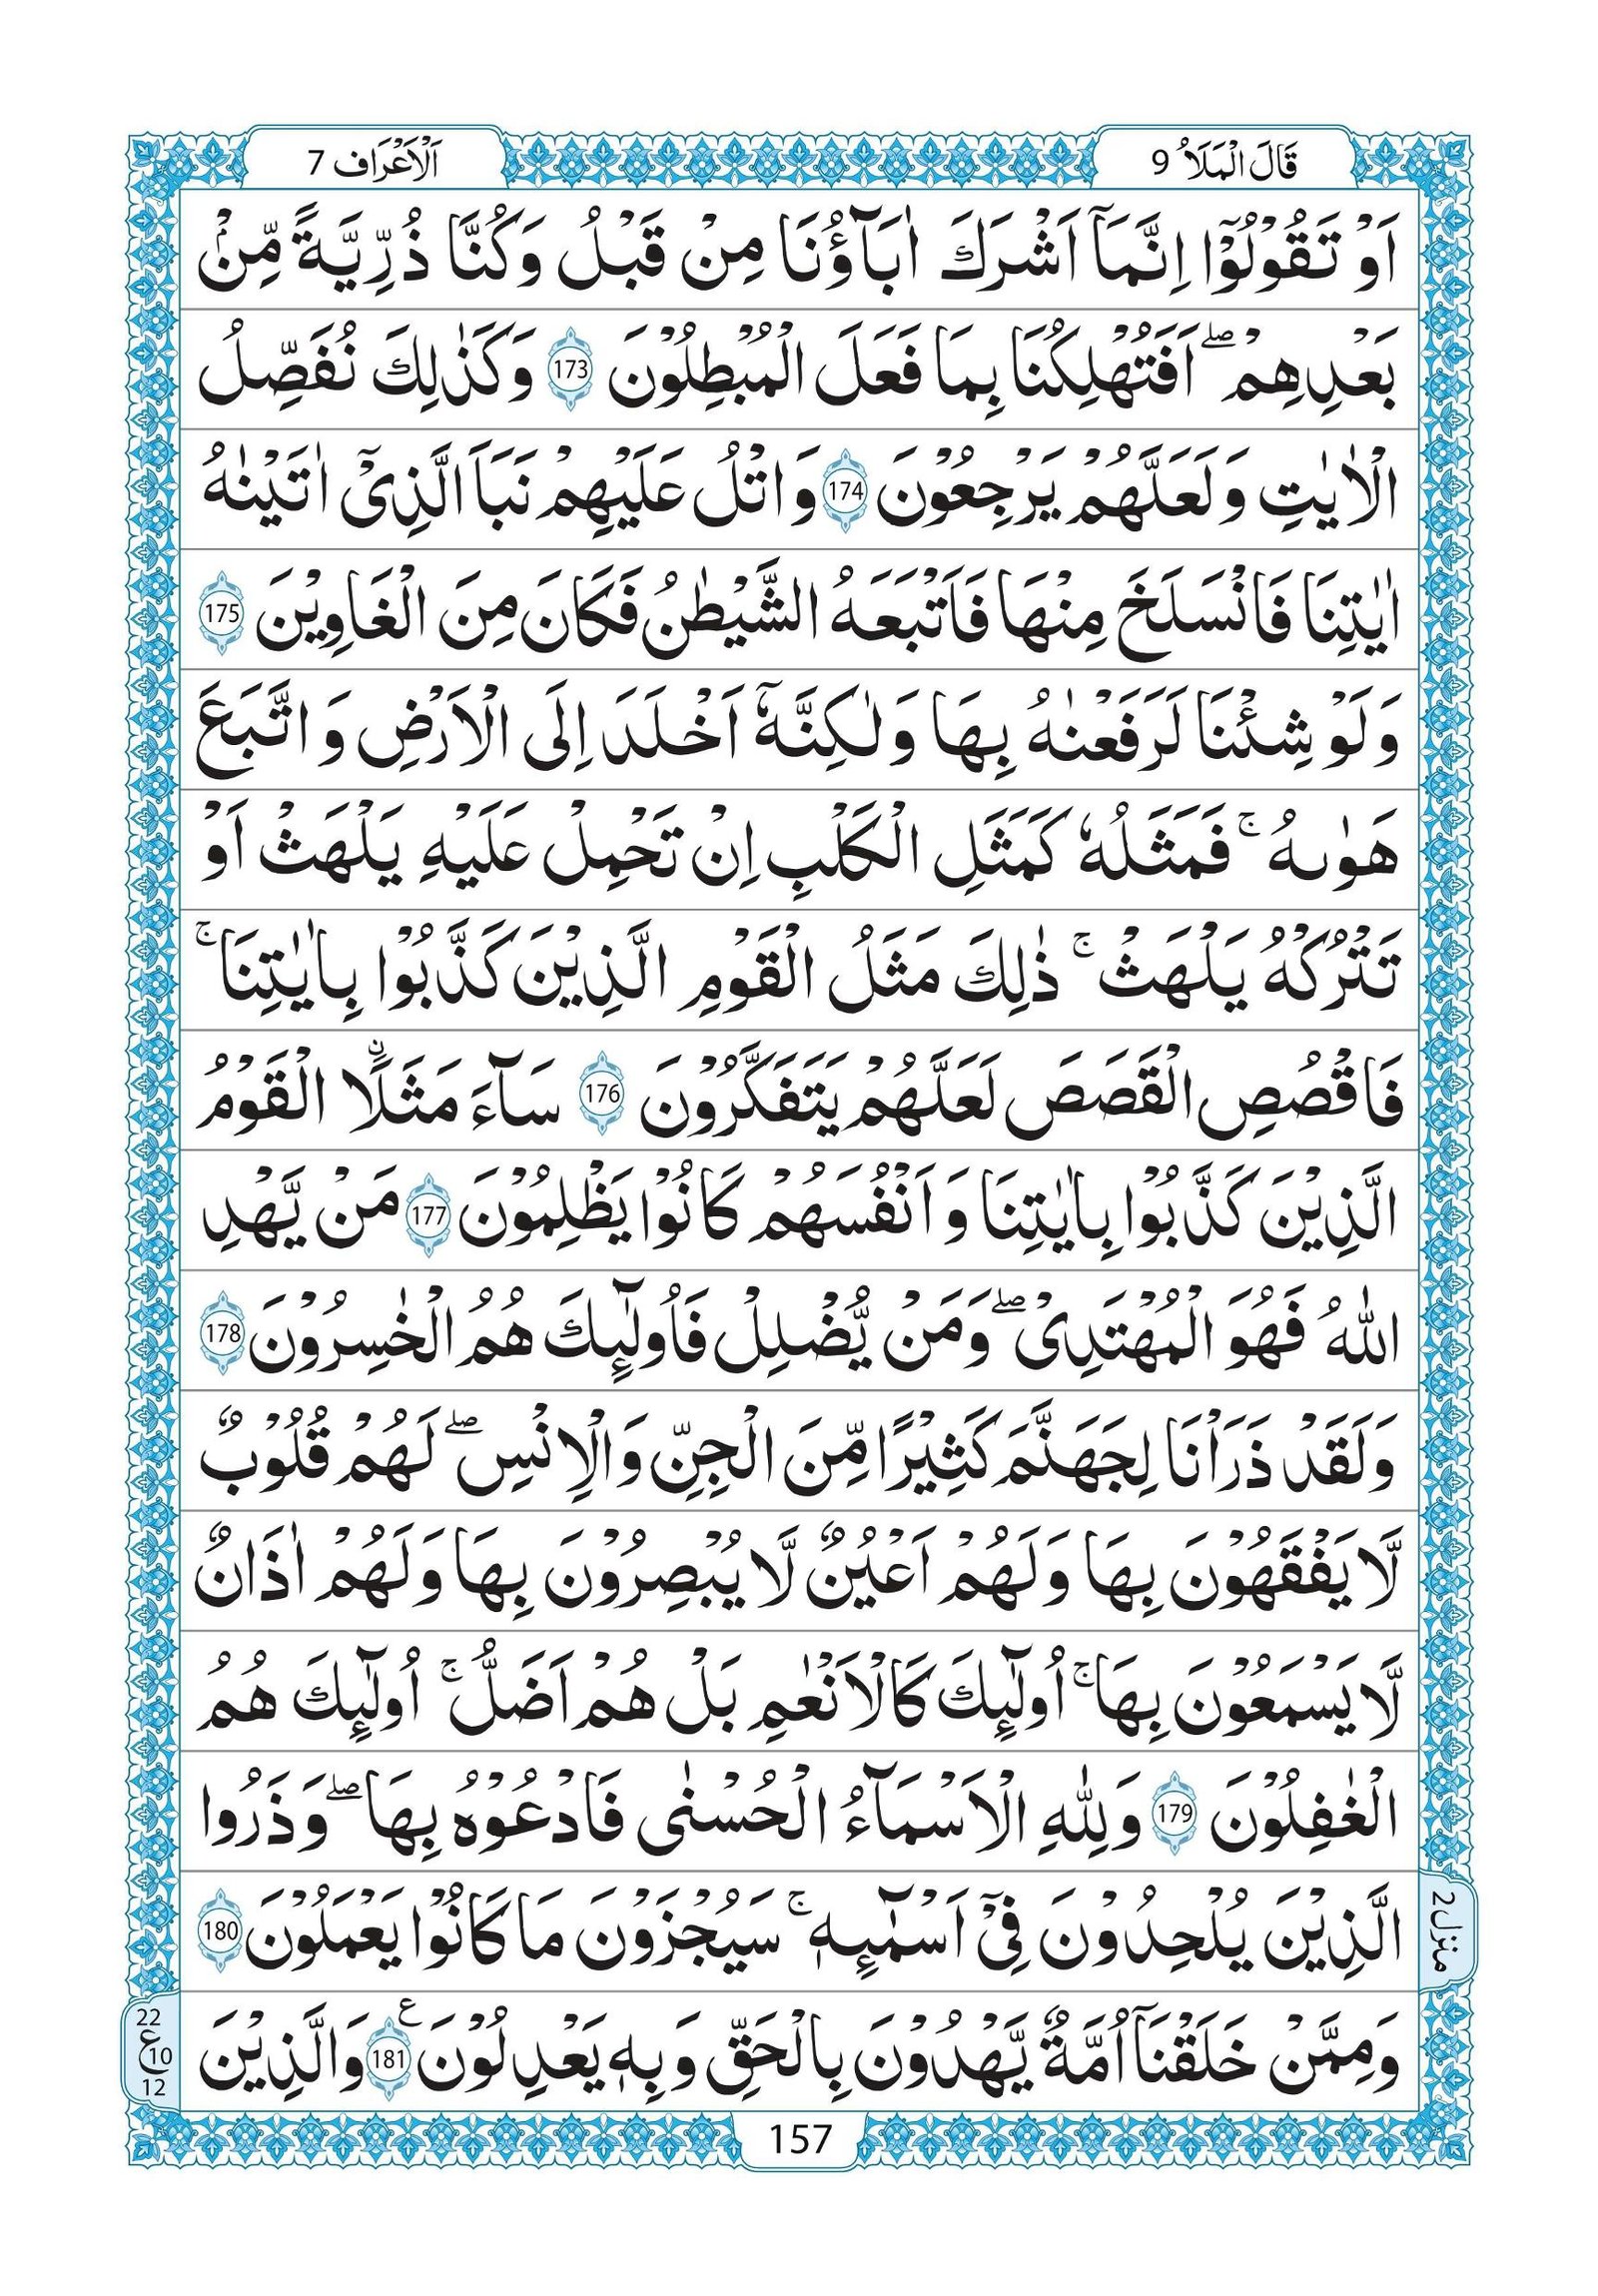 قَالَ الْمَلَاُ 9
اَلْاَعْرَاف 7
اَوْ تَقُوْلُوْۤا اِنَّمَاۤ اَشْرَكَ اٰبَآؤُنَا مِنْ قَبْلُ وَكُنَّا ذُرِّيَّةً مِّنْۢ
بَعْدِهِمْ ۖۚ اَفَتُهْلِكُنَا بِمَا فَعَلَ الْمُبْطِلُوْنَ 173 وَكَذٰلِكَ نُفَصِّلُ
الْاٰيٰتِ وَلَعَلَّهُمْ يَرْجِعُوْنَ 174 وَاتْلُ عَلَيْهِمْ نَبَاَ الَّذِيْۤ اٰتَيْنٰهُ
اٰيٰتِنَا فَانْسَلَخَ مِنْهَا فَاَتْبَعَهُ الشَّيْطٰنُ فَكَانَ مِنَ الْغَاوِيْنَ 175
وَلَوْ شِئْنَا لَرَفَعْنٰهُ بِهَا وَلٰكِنَّهٗۤ اَخْلَدَ اِلَى الْاَرْضِ وَاتَّبَعَ
هَوٰىهُ ۚ فَمَثَلُهٗ كَمَثَلِ الْكَلْبِ اِنْ تَحْمِلْ عَلَيْهِ يَلْهَثْ اَوْ
تَتْرُكْهُ يَلْهَثْ ۚ ذٰلِكَ مَثَلُ الْقَوْمِ الَّذِيْنَ كَذَّبُوْا بِاٰيٰتِنَا ۚ
فَاقْصُصِ الْقَصَصَ لَعَلَّهُمْ يَتَفَكَّرُوْنَ 176 سَآءَ مَثَلًا ۨ الْقَوْمُ
الَّذِيْنَ كَذَّبُوْا بِاٰيٰتِنَا وَاَنْفُسَهُمْ كَانُوْا يَظْلِمُوْنَ 177 مَنْ يَّهْدِ
اللّٰهُ فَهُوَ الْمُهْتَدِيْ ۖ وَمَنْ يُّضْلِلْ فَاُولٰٓئِكَ هُمُ الْخٰسِرُوْنَ 178
وَلَقَدْ ذَرَاْنَا لِجَهَنَّمَ كَثِيْرًا مِّنَ الْجِنِّ وَالْاِنْسِ ۖ لَهُمْ قُلُوْبٌ
لَّا يَفْقَهُوْنَ بِهَا وَلَهُمْ اَعْيُنٌ لَّا يُبْصِرُوْنَ بِهَا وَلَهُمْ اٰذَانٌ
لَّا يَسْمَعُوْنَ بِهَا ۚ اُولٰٓئِكَ كَالْاَنْعٰمِ بَلْ هُمْ اَضَلُّ ۚ اُولٰٓئِكَ هُمُ
الْغٰفِلُوْنَ 179 وَلِلّٰهِ الْاَسْمَآءُ الْحُسْنٰى فَادْعُوْهُ بِهَا ۖ وَذَرُوا
الَّذِيْنَ يُلْحِدُوْنَ فِيْۤ اَسْمٰٓئِهٖ ۚ سَيُجْزَوْنَ مَا كَانُوْا يَعْمَلُوْنَ 180
منزل 2
وَمِمَّنْ خَلَقْنَاۤ اُمَّةٌ يَّهْدُوْنَ بِالْحَقِّ وَبِهٖ يَعْدِلُوْنَ ع 181 وَالَّذِيْنَ
22
ع 10
12
157